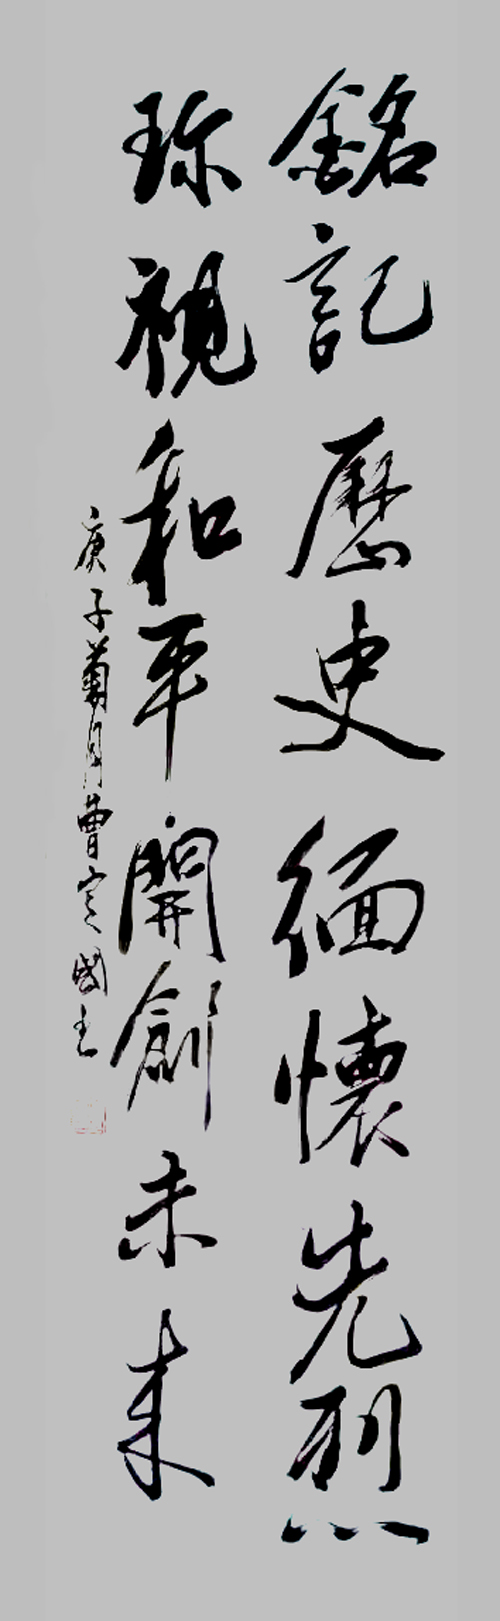 銘記歷史緬懷先烈
珍視和平開創未來
庚子菊月曹定國書